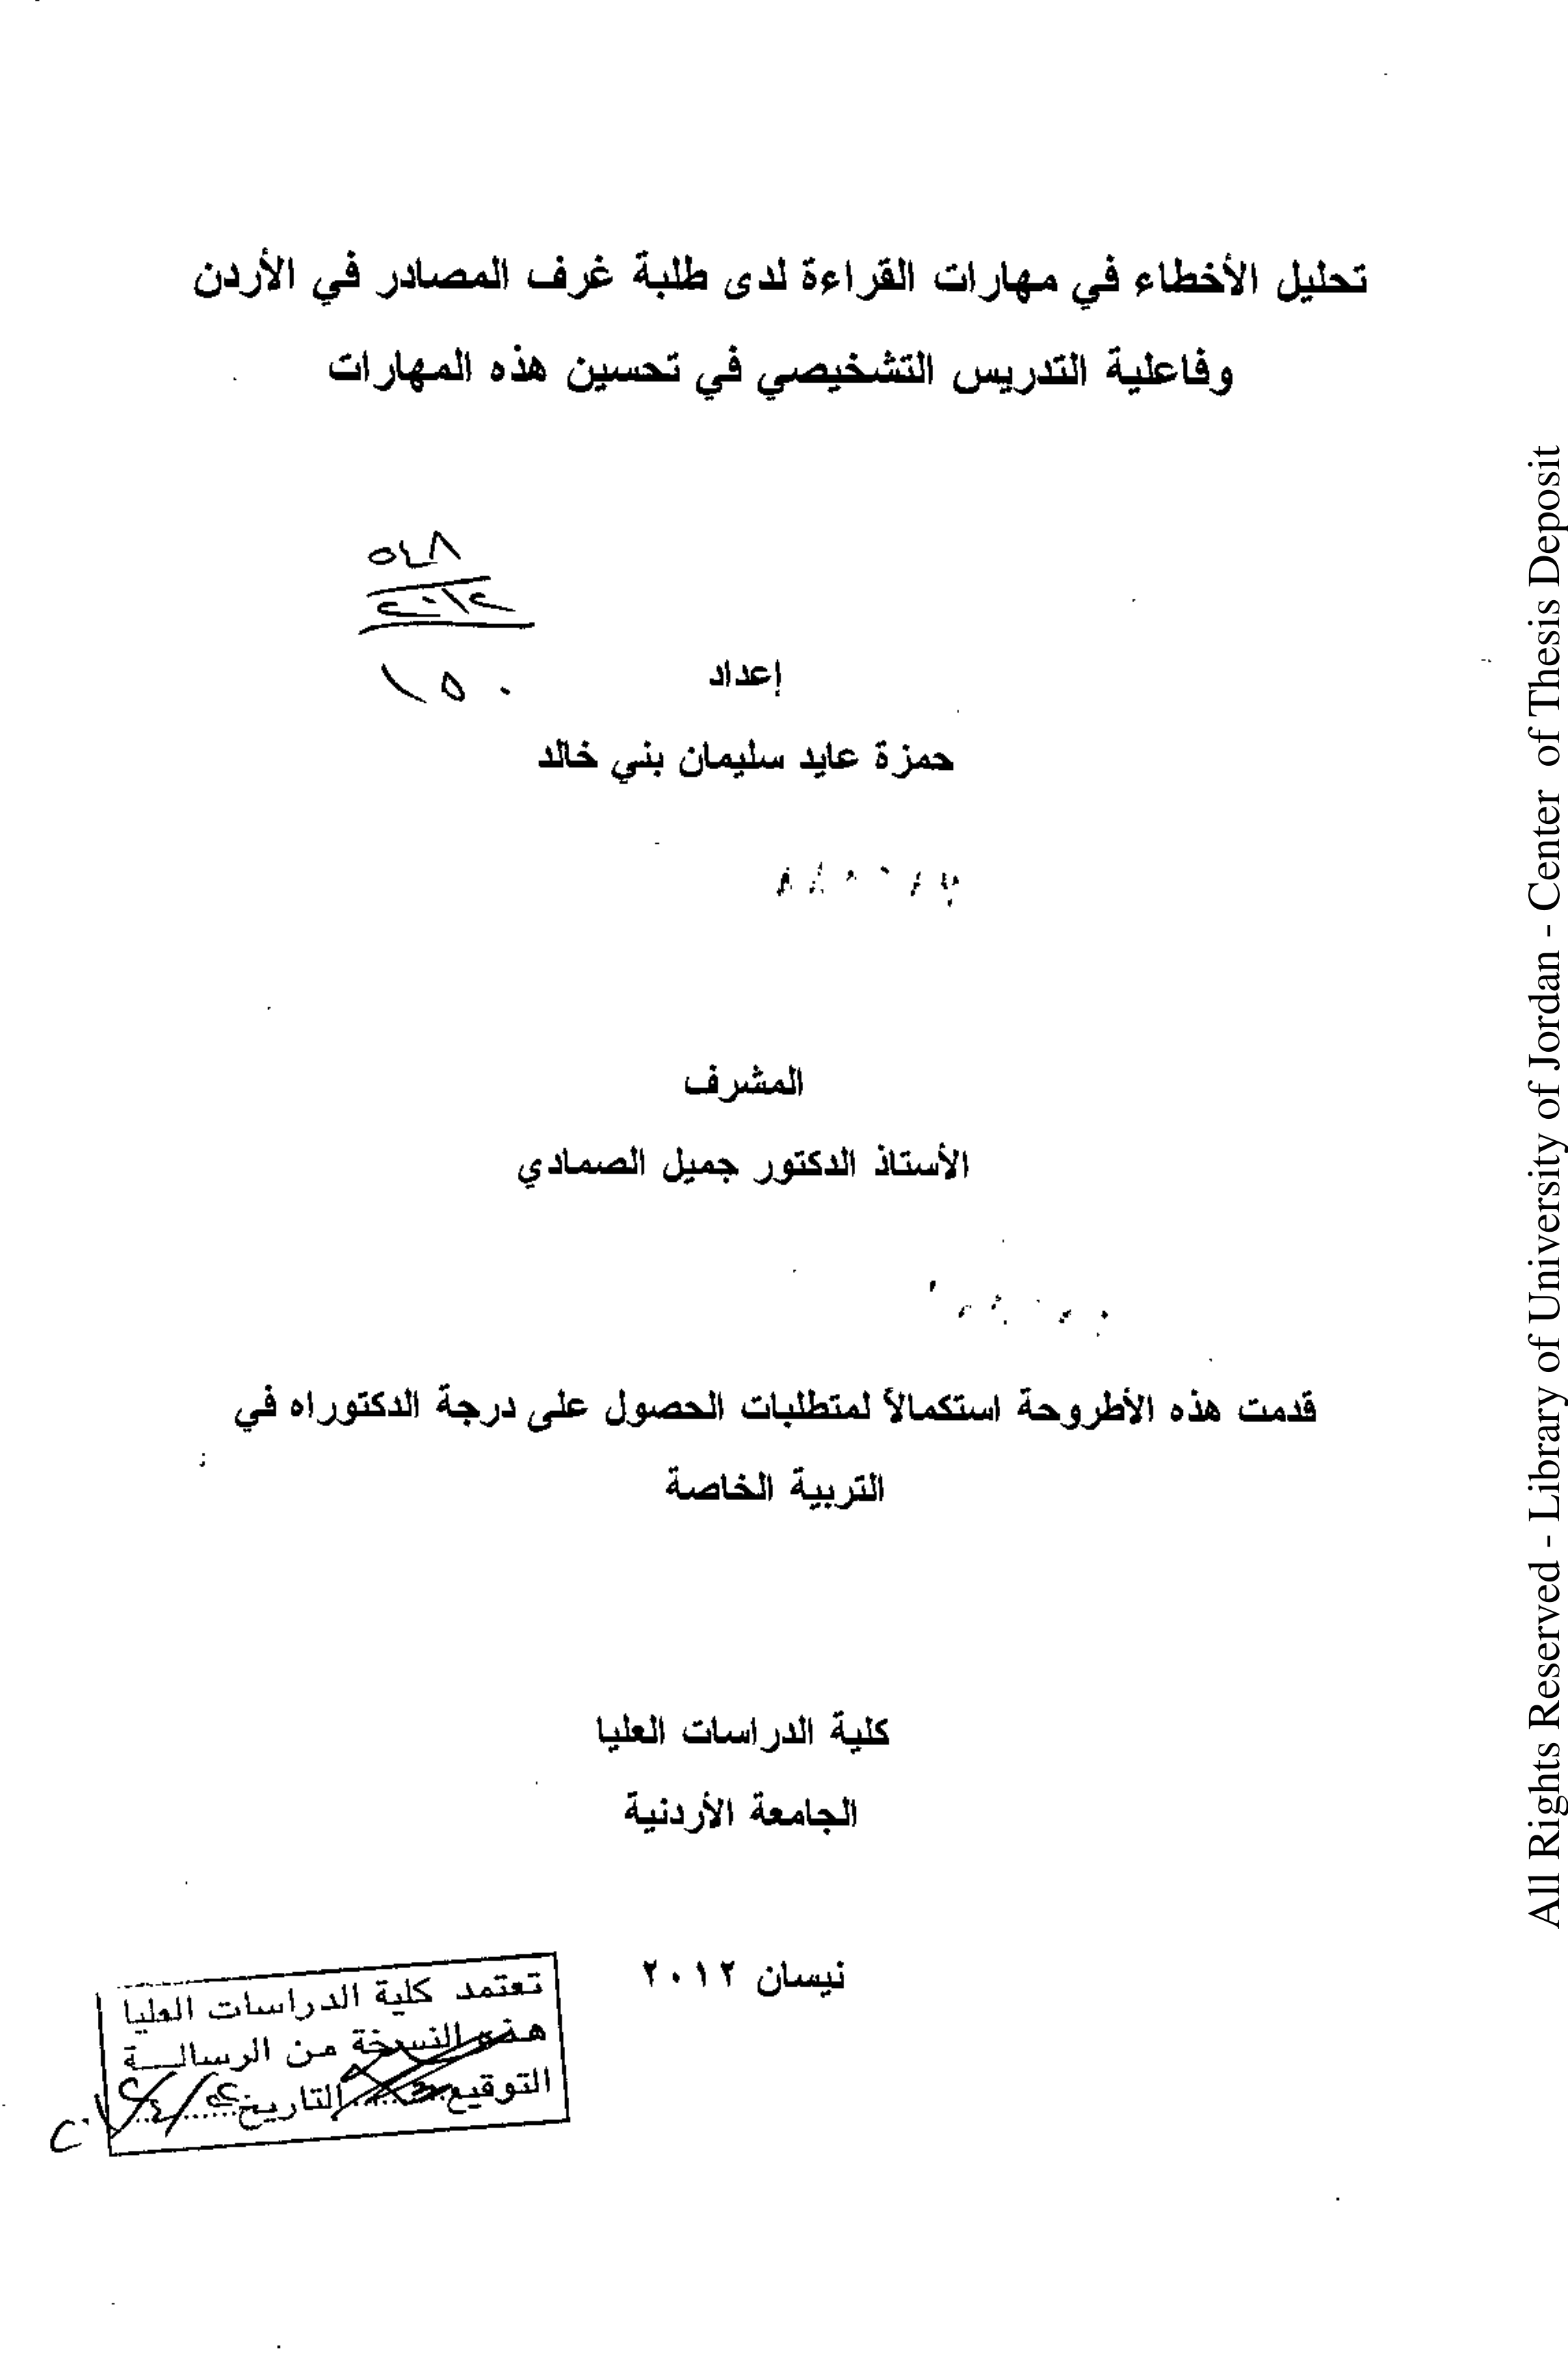 تحليل الأخطاء في مهارات القراءة لدى طلبة غرف المصادر في الأردن
وفاعلية التدريس التشخيصي في تحسين هذه المهارات
٥٤٨
٢٠١٢
١٥٠
إعداد
حمزة عايد سليمان بني خالد
المشرف
الأستاذ الدكتور جميل الصمادي
قدمت هذه الأطروحة استكمالاً لمتطلبات الحصول على درجة الدكتوراه في
التربية الخاصة
كلية الدراسات العليا
الجامعة الأردنية
نيسان ٢٠١٢
تعتمد كلية الدراسات العليا
هذه النسخة من الرسالــة
التوقيع التاريخ
All Rights Reserved - Library of University of Jordan - Center of Thesis Deposit